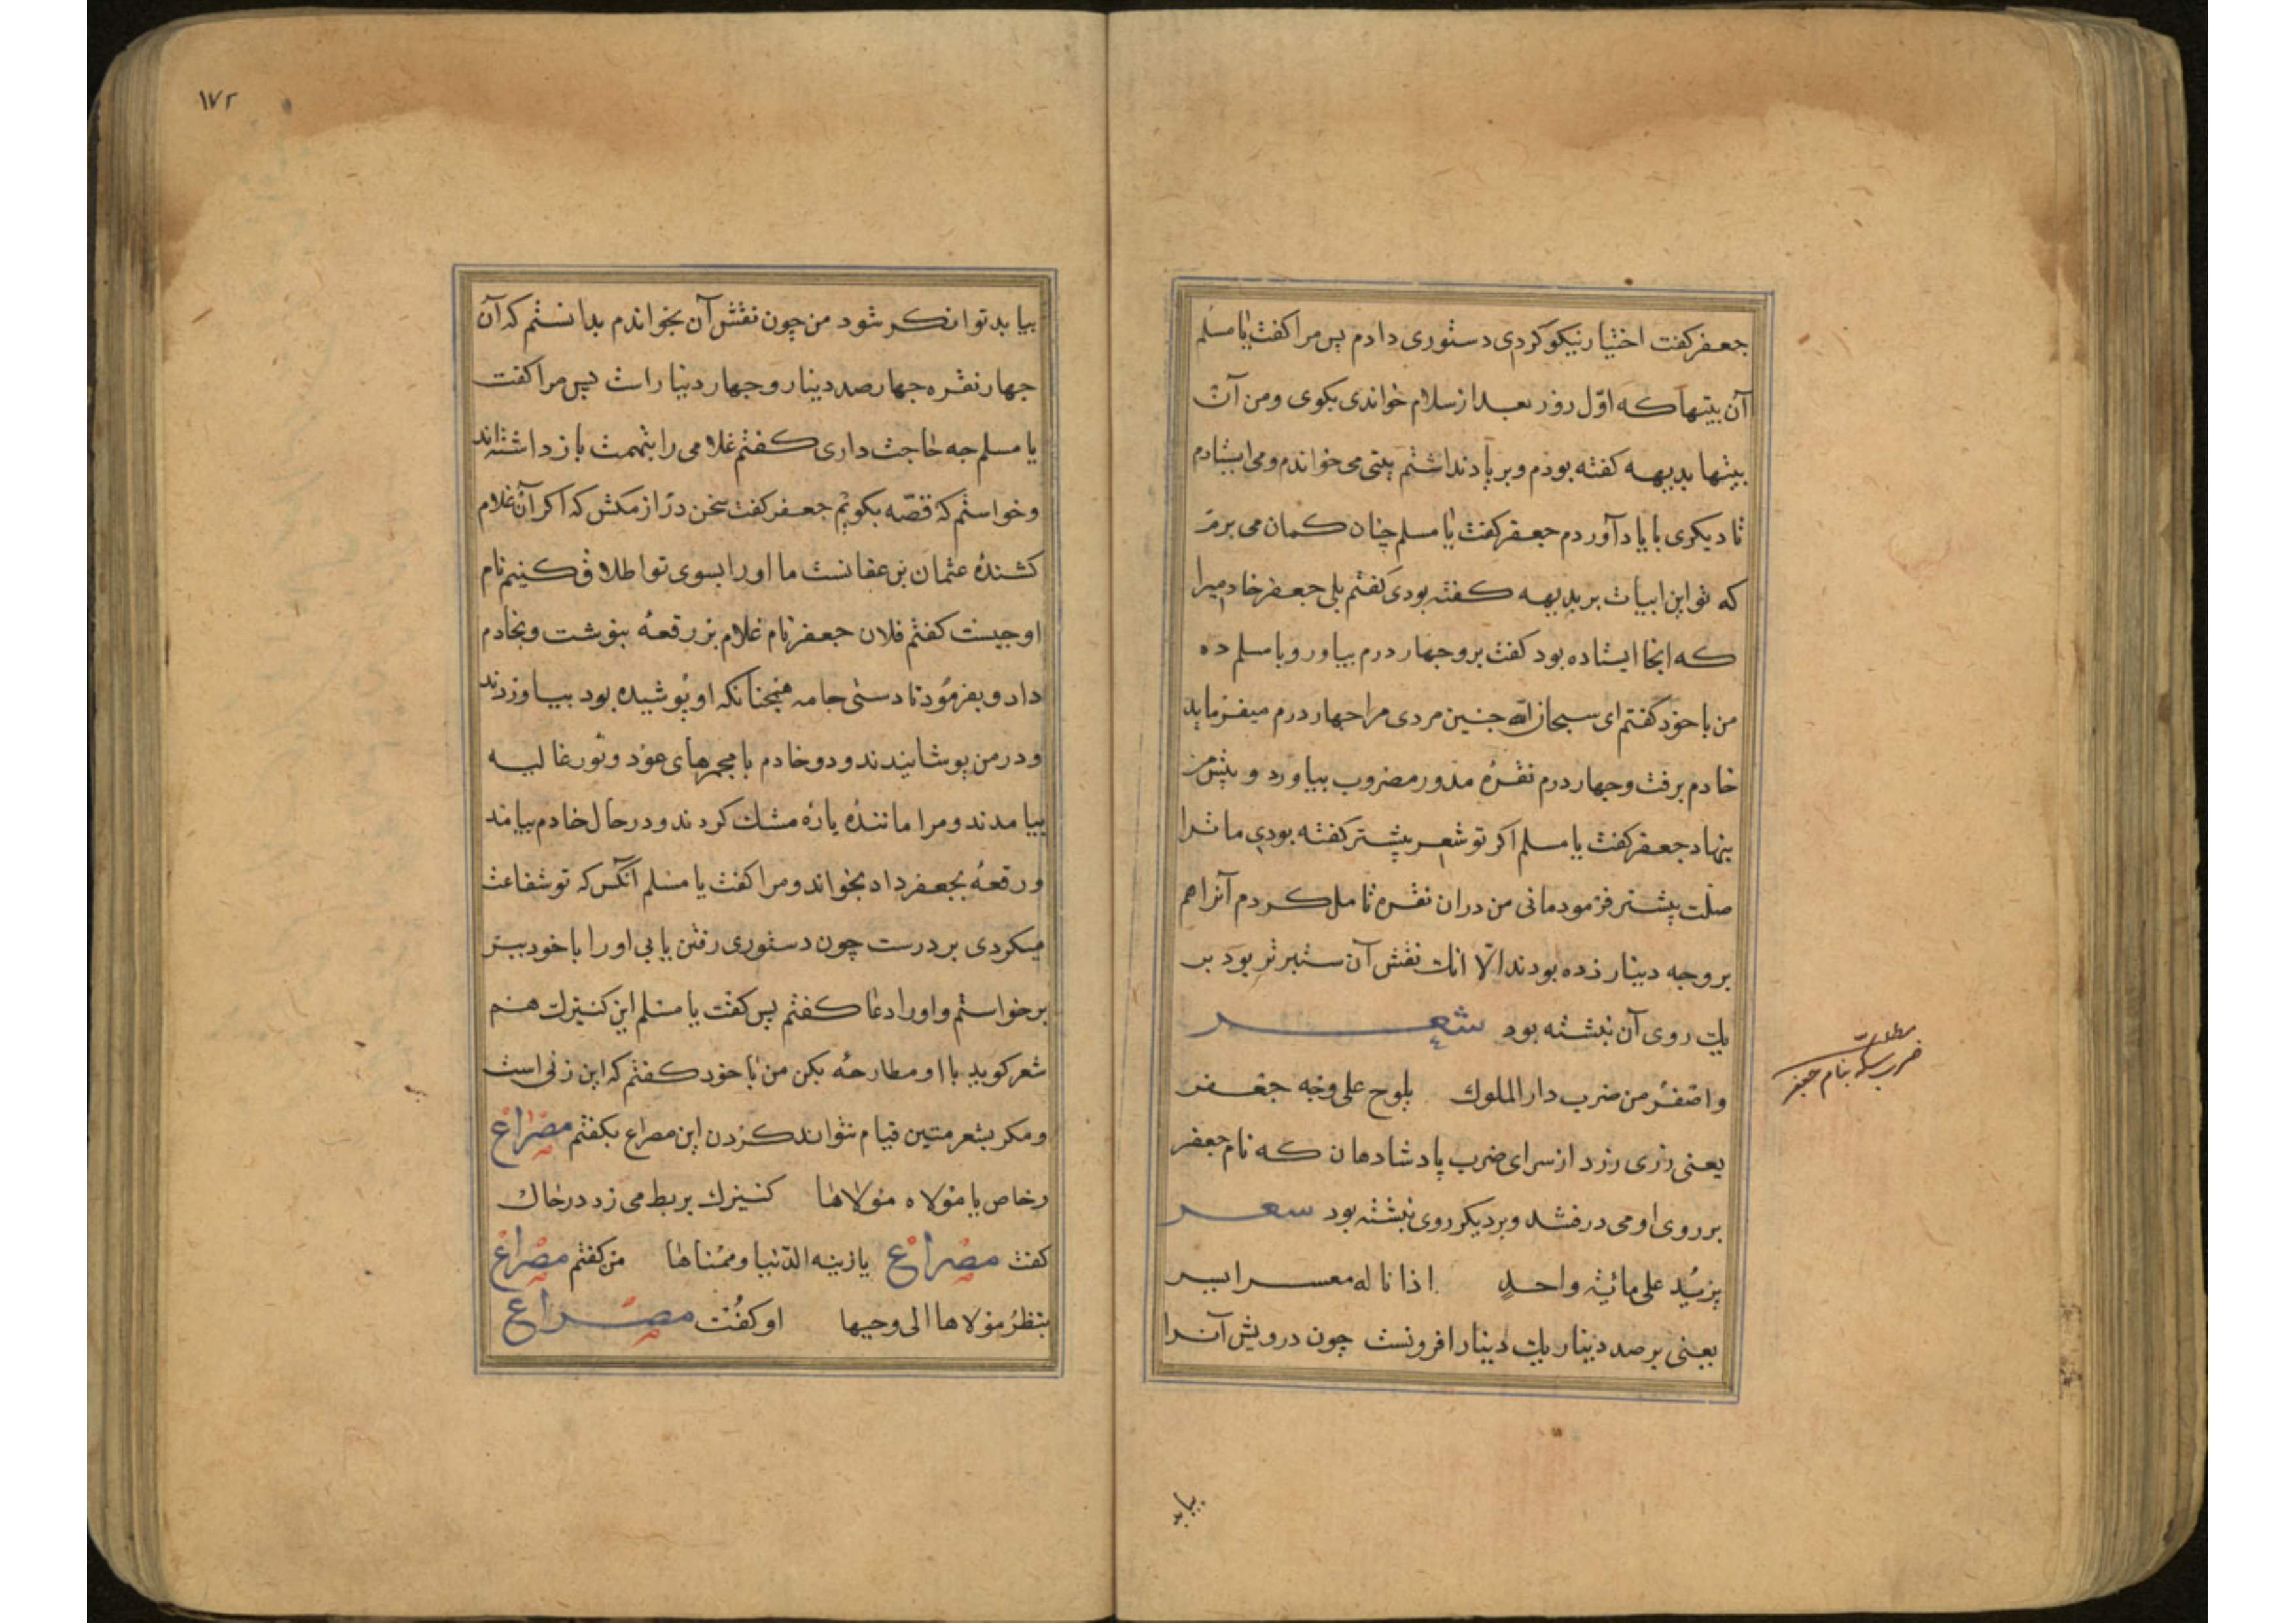 جعفر كفت اختيار نيكو كردى دستورى دادم پس مرا كفت يا مسلم
آن بيتها كه اوّل روز بعد از سلام خواندى بكوى ومن آن
بيتها بديهه كفته بودم و بر ياد نداشتم بيتى مى خواندم ومى ايستادم
تا ديكرى با ياد آوردم جعفر كفت يا مسلم چنان كمان مى برم
كه تو اين ابيات بر بديهه كفته بودى كفتم بلى جعفر خادم را
كه انجا ايستاده بود كفت برو چهار درم بياور و با مسلم ده
من با خود كفتم اى سبحان الله چنين مردى مرا جهار درم ميفرمايد
خادم برفت وجهار درم نقره مدور مضروب بياورد و پيش من
بنهاد جعفر كفت يا مسلم اكر تو شعر پيشتر كفته بودى ما ترا
صلت پيشتر فرمودمانى من دران نقره تامل كردم آنرا هم
بر وجه دينار زده بودند الّا انك نقش آن ستبرتر بود بر
يك روى آن نبشته بود شعر
واصفر من ضرب دار الملوك يلوح على وجه جعفر
يعنى زرى زرد از سراى ضرب پادشاهان كه نام جعفر
بر روى او مى درفشد وبر ديكر روى نبشته بود شعر
يزيد على مائة واحد اذا ناله معسر ايسر
يعنى بر صد دينار يك دينار افزونست چون درويش آنرا
بيابد
مطلب
ضرب سكه بنام جعفر
١٧٢
بيابد توانكر شود من چون نقش آن بخواندم بدانستم كه آن
جهار نقره جهار صد دينار و جهار دينار است پس مرا كفت
يا مسلم جه حاجت دارى كفتم غلامى را بتهمت باز داشته اند
وخواستم كه قصّه بكويم جعفر كفت سخن دراز مكش كه اكر آن غلام
كشندۀ عثمان بن عفانست ما او را بسوى تو اطلاق كنيم نام
او جيست كفتم فلان جعفر نام غلام بر رقعۀ بنوشت وبخادم
داد و بفرمود تا دستى جامه همچنانكه او پوشيده بود بياوردند
و در من پوشانيدند و دو خادم با مجمرهاى عود و تور غاليه
بيامدند و مرا مانندۀ پارۀ مشك كردند و در حال خادم بيامد
و رقعۀ بجعفر داد بخواند و مرا كفت يا مسلم آنكس كه تو شفاعت
ميكردى بر درست چون دستورى رفتن يابى او را با خود ببر
برخواستم و او را دعا كفتم پس كفت يا مسلم اين كنيزك هم
شعر كويد با او مطارحۀ بكن من با خود كفتم كه اين زنى است
ومكر بشعر متين قيام نتواند كردن اين مصراع بكفتم مصراع
رخاص يا مولاه مولاها كنيزك بربط مى زد در حال
كفت مصراع يا زينه الدّنيا وممناها من كفتم مصراع
ينظر مولاها الى وجيها او كفت مصراع